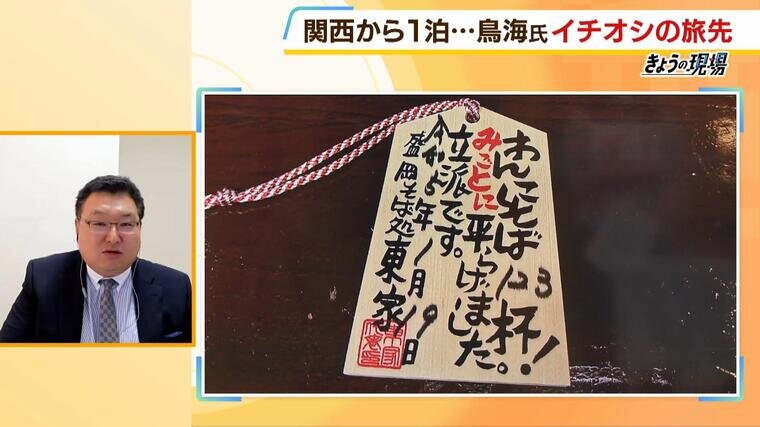 関西から1泊…鳥海氏 イチオシの旅先
きょうの現場
わんこそば123杯!
みごとに平らげました。
立派です。
令和5年1月19日
盛岡そば処東家